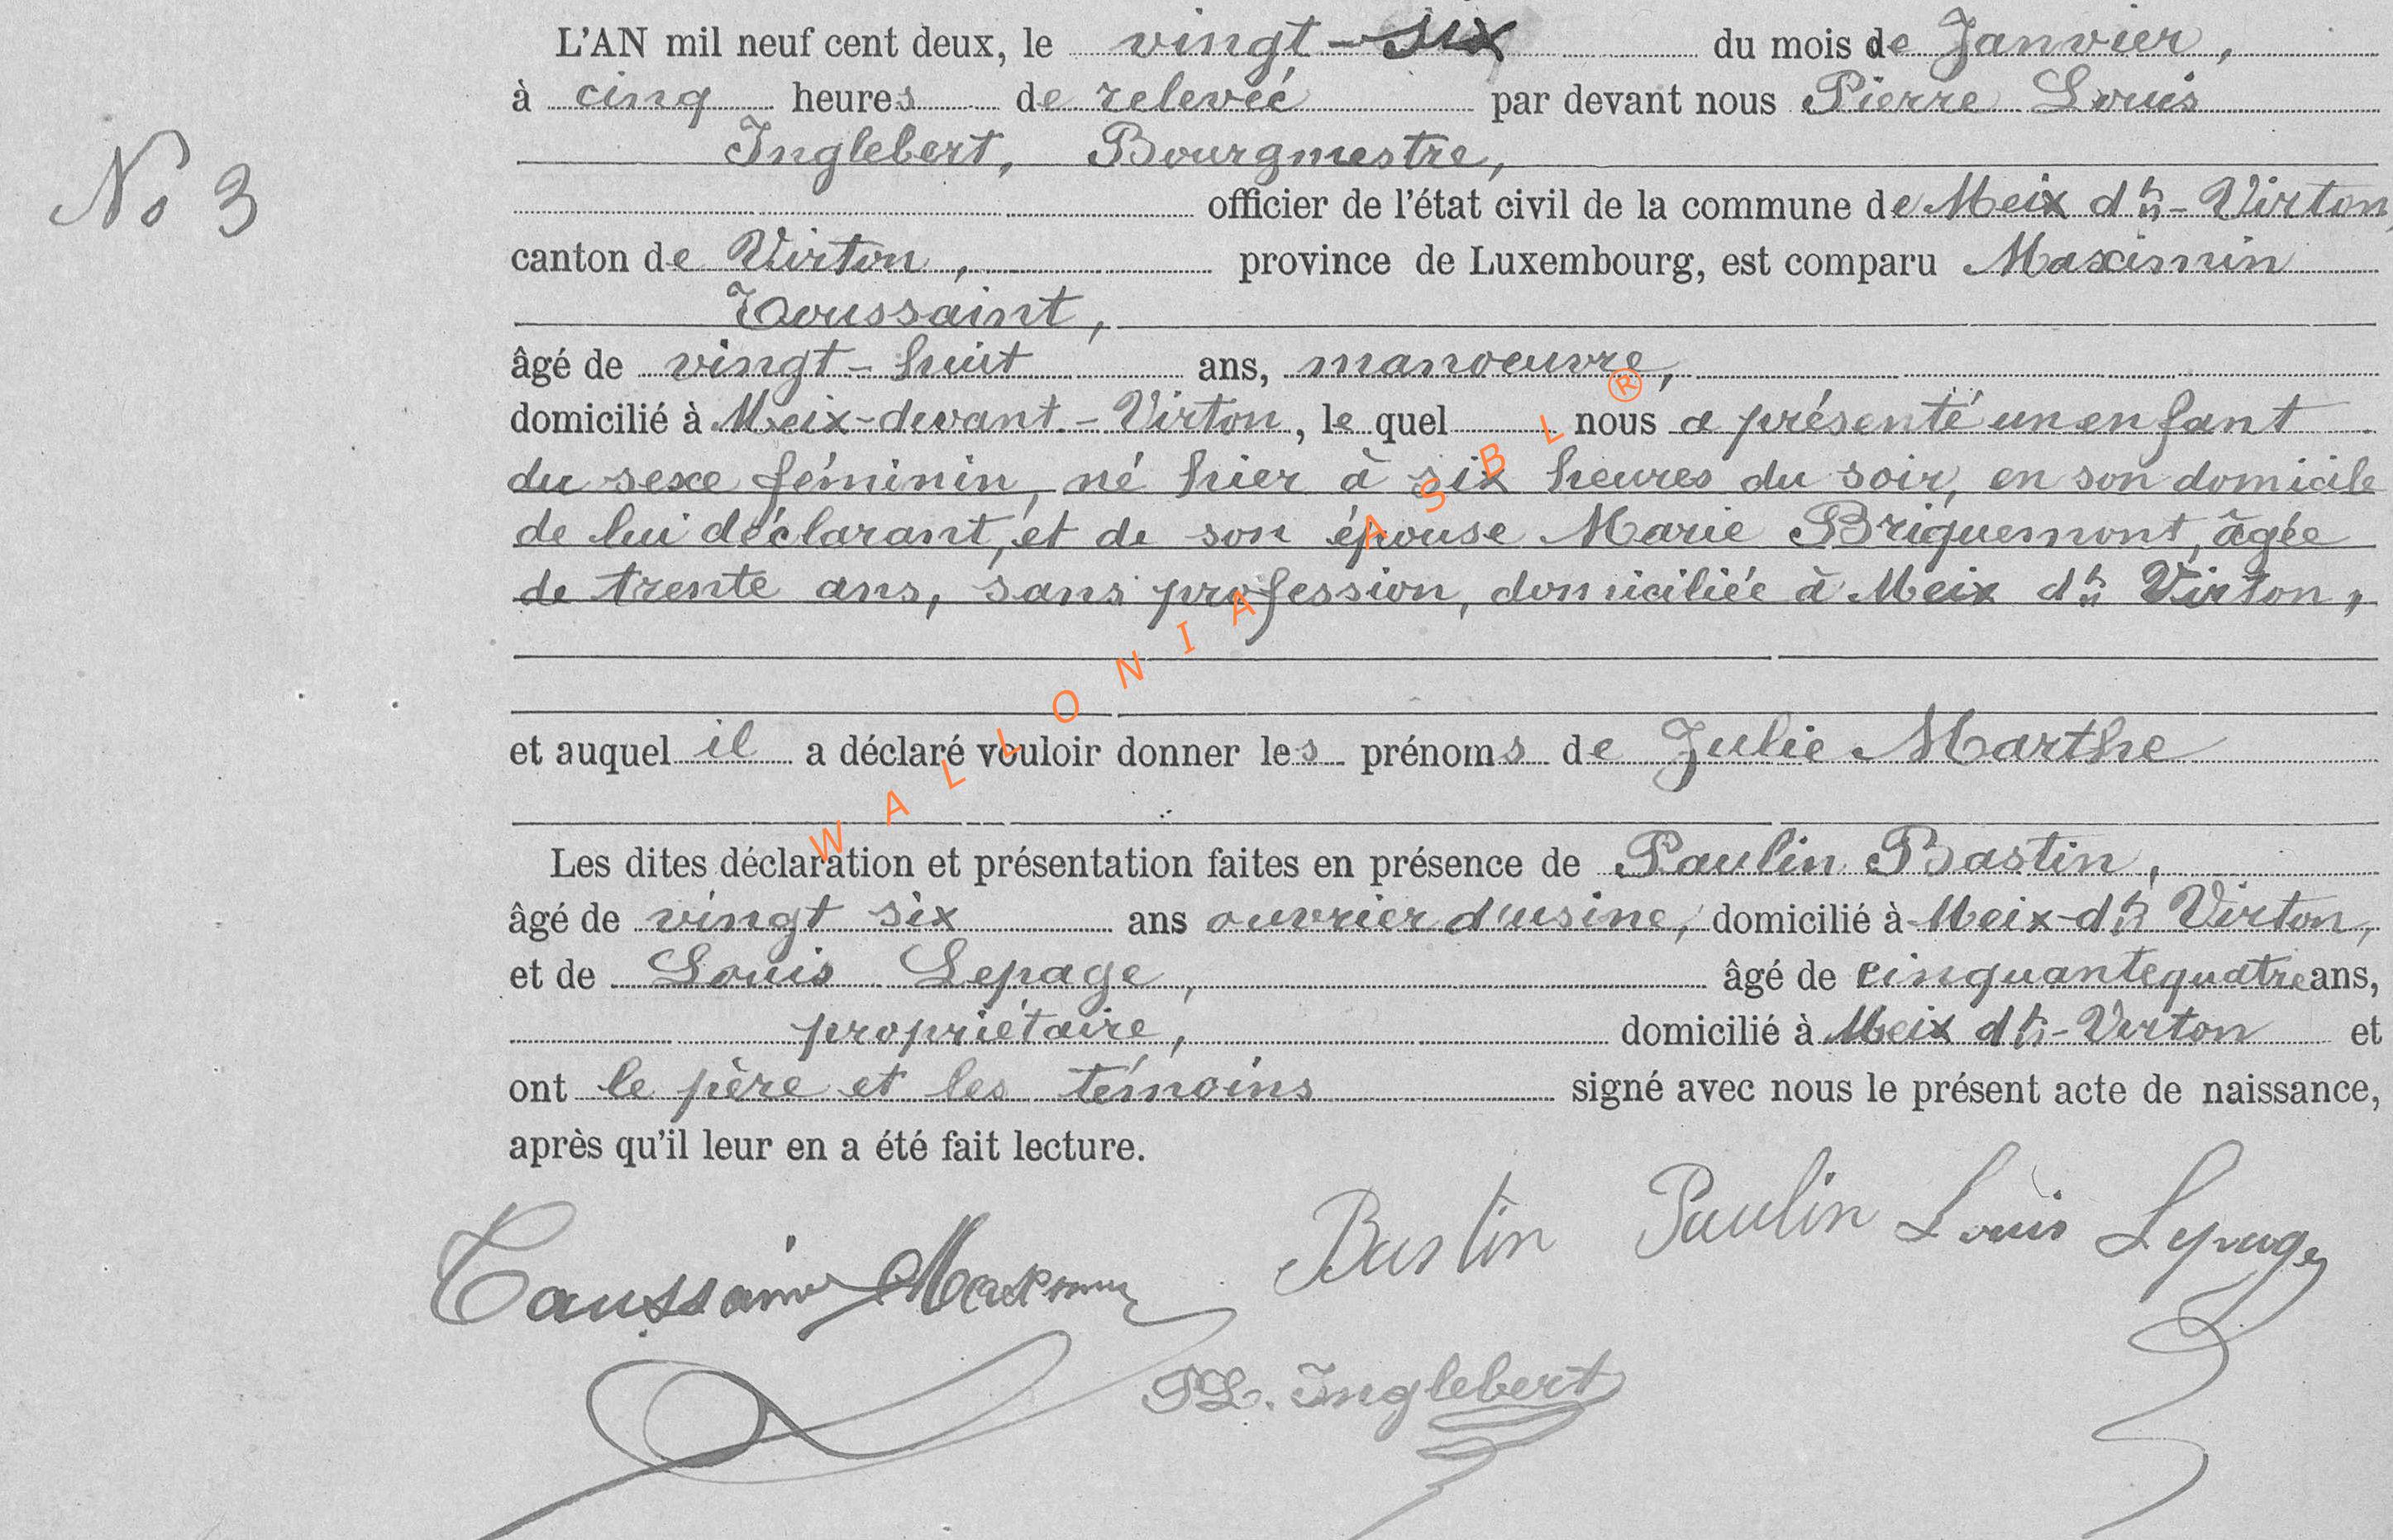 L'AN mil neuf cent deux, le vingt-six du mois de Janvier,
à cinq heures de relevée par devant nous Pierre Louis
Inglebert, Bourgmestre,
No 3
officier de l'état civil de la commune de Meix dt-Virton,
canton de Virton, province de Luxembourg, est comparu Maximin
Toussaint,
âgé de vingt-huit ans, manoeuvre,
domicilié à Meix-devant-Virton, le quel nous a présenté un enfant
du sexe féminin, né hier à six heures du soir, en son domicile
de lui déclarant, et de son épouse Marie Briquemont, âgée
de trente ans, sans profession, domiciliée à Meix dt Virton,
et auquel il a déclaré vouloir donner les prénoms de Julie Marthe
Les dites déclaration et présentation faites en présence de Paulin Bastin,
âgé de vingt six ans ouvrier d'usine, domicilié à Meix-dt Virton,
et de Louis Lepage, âgé de cinquante quatre ans,
propriétaire, domicilié à Meix dt-Virton et
ont le père et les témoins signé avec nous le présent acte de naissance,
après qu'il leur en a été fait lecture.
Toussaint Maximin Bastin Paulin Louis Lepage
PL. Inglebert
WALLONIA ASBL ®